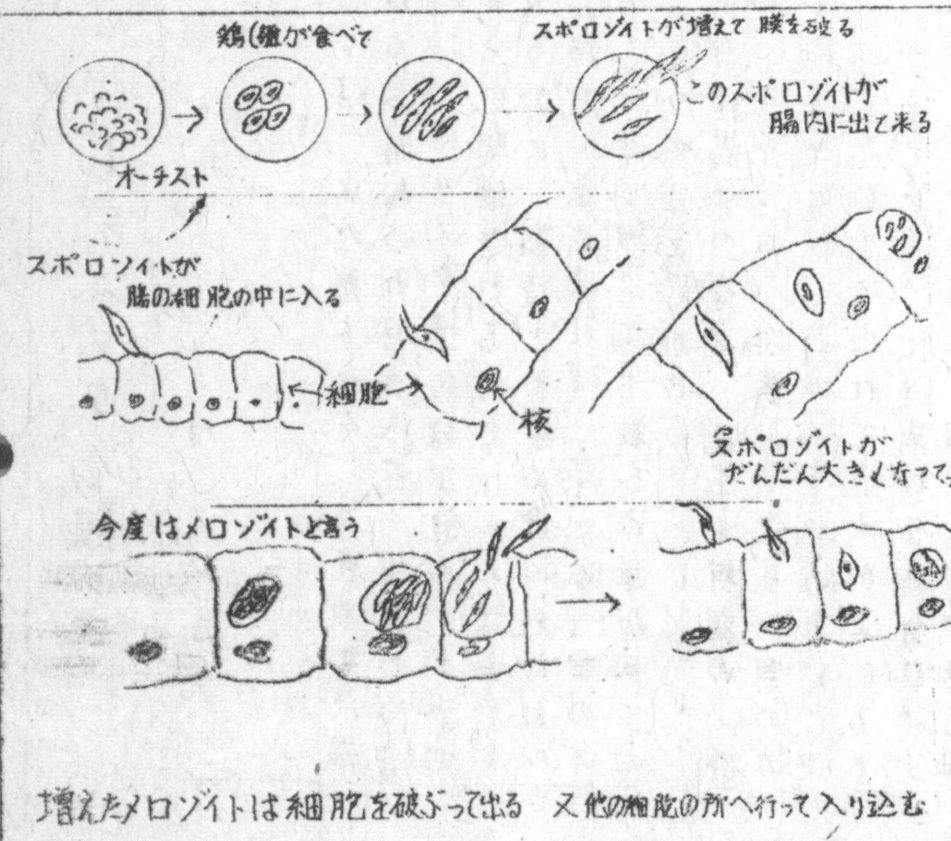 鶏(雛が食べて
スポロゾイトが増えて 膜を破る
このスポロゾイトが
腸内に出て来る
オーチスト
スポロゾイトが
腸の細胞の中に入る
細胞
核
スポロゾイトが
だんだん大きくなって
今度はメロゾイトと言う
増えたメロゾイトは細胞を破ぶって出る 又他の細胞の所へ行って入り込む